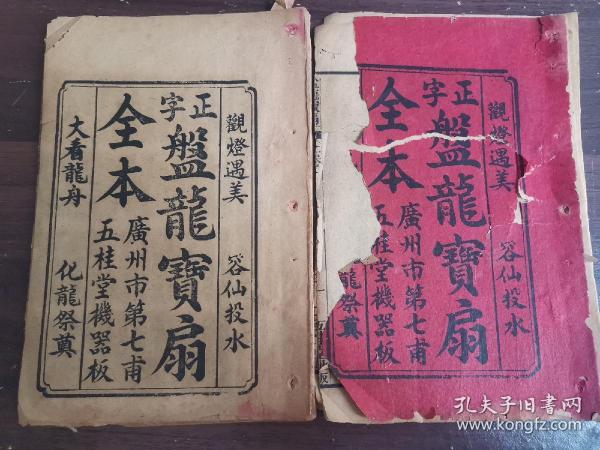 觀燈遇美 容仙投水
正字
盤龍寶扇
全本
廣州市第七甫
五桂堂機器板
大看龍舟 化龍祭奠
觀燈遇美 容仙投水
正字
盤龍寶扇
全本
廣州市第七甫
五桂堂機器板
龍祭奠
孔夫子旧书网
www.kongfz.com